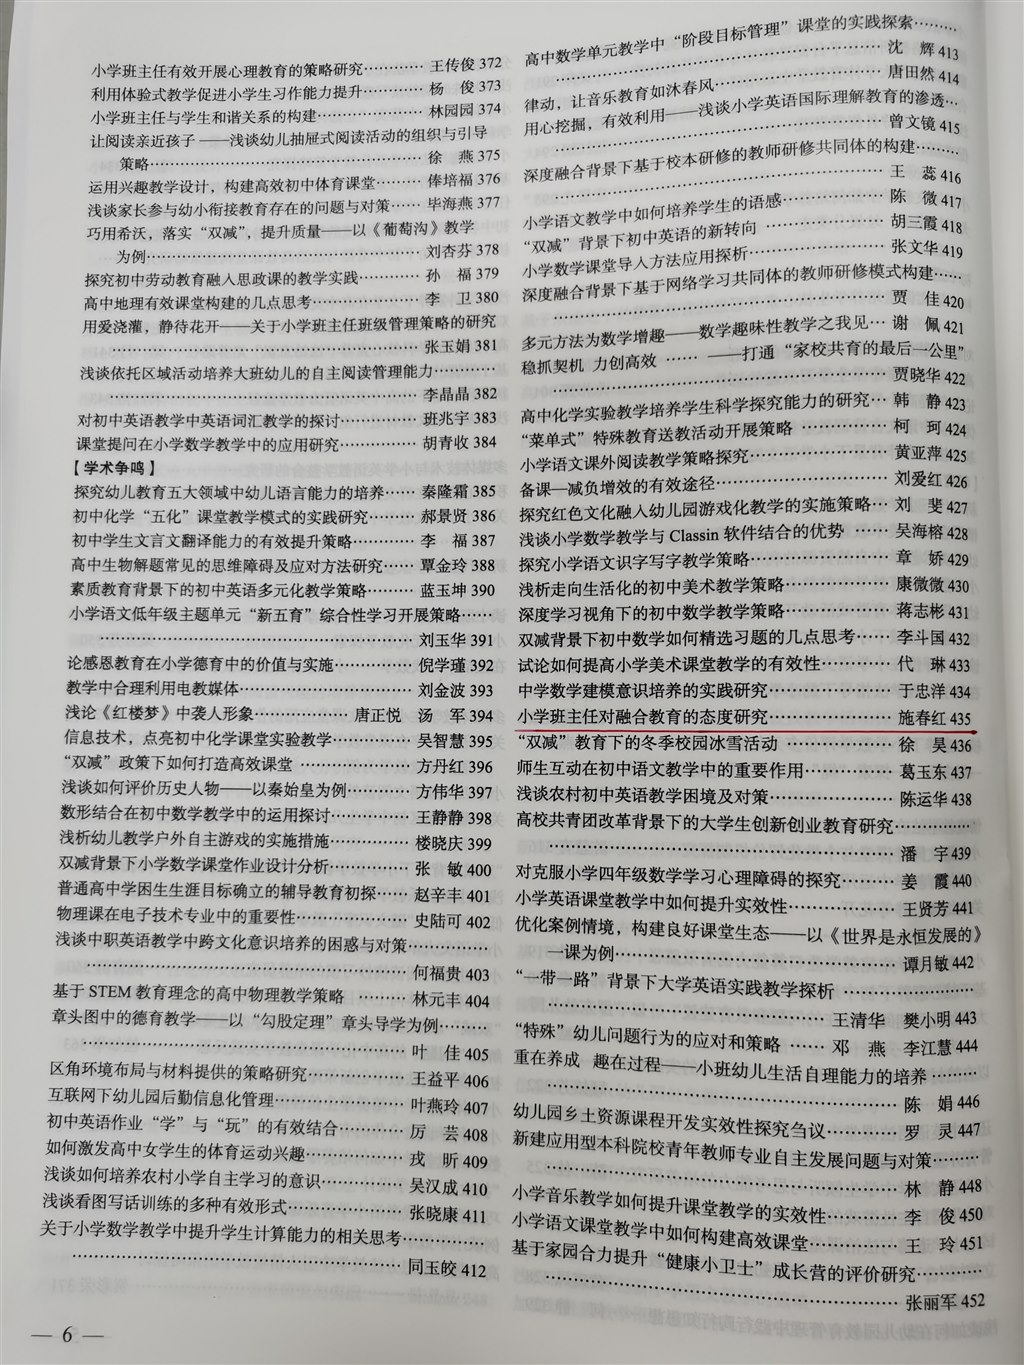 小学班主任有效开展心理教育的策略研究………… 王传俊 372
利用体验式教学促进小学生习作能力提升………… 杨　俊 373
小学班主任与学生和谐关系的构建………………… 林园园 374
让阅读亲近孩子 ——浅谈幼儿抽屉式阅读活动的组织与引导
策略…………………………………………… 徐　燕 375
运用兴趣教学设计，构建高效初中体育课堂……… 俸培福 376
浅谈家长参与幼小衔接教育存在的问题与对策…… 毕海燕 377
巧用希沃，落实“双减”，提升质量——以《葡萄沟》教学
为例…………………………………………… 刘杏芬 378
探究初中劳动教育融入思政课的教学实践………… 孙　福 379
高中地理有效课堂构建的几点思考………………… 李　卫 380
用爱浇灌，静待花开——关于小学班主任班级管理策略的研究
…………………………………………………… 张玉娟 381
浅谈依托区域活动培养大班幼儿的自主阅读管理能力…………
…………………………………………………… 李晶晶 382
对初中英语教学中英语词汇教学的探讨…………… 班兆宇 383
课堂提问在小学数学教学中的应用研究…………… 胡青收 384
【学术争鸣】
探究幼儿教育五大领域中幼儿语言能力的培养…… 秦隆霜 385
初中化学“五化”课堂教学模式的实践研究……… 郝景贤 386
初中学生文言文翻译能力的有效提升策略………… 李　福 387
高中生物解题常见的思维障碍及应对方法研究…… 覃金玲 388
素质教育背景下的初中英语多元化教学策略……… 蓝玉坤 390
小学语文低年级主题单元“新五育”综合性学习开展策略……
…………………………………………………… 刘玉华 391
论感恩教育在小学德育中的价值与实施…………… 倪学瑾 392
教学中合理利用电教媒体…………………………… 刘金波 393
浅论《红楼梦》中袭人形象…………… 唐正悦　汤　军 394
信息技术，点亮初中化学课堂实验教学…………… 吴智慧 395
“双减”政策下如何打造高效课堂 ……………… 方丹红 396
浅谈如何评价历史人物——以秦始皇为例………… 方伟华 397
数形结合在初中数学教学中的运用探讨…………… 王静静 398
浅析幼儿教学户外自主游戏的实施措施…………… 楼晓庆 399
双减背景下小学数学课堂作业设计分析…………… 张　敏 400
普通高中学困生生涯目标确立的辅导教育初探…… 赵辛丰 401
物理课在电子技术专业中的重要性………………… 史陆可 402
浅谈中职英语教学中跨文化意识培养的困惑与对策……………
…………………………………………………… 何福贵 403
基于 STEM 教育理念的高中物理教学策略 ……… 林元丰 404
章头图中的德育教学——以“勾股定理”章头导学为例………
…………………………………………………… 叶　佳 405
区角环境布局与材料提供的策略研究……………… 王益平 406
互联网下幼儿园后勤信息化管理…………………… 叶燕玲 407
初中英语作业“学”与“玩”的有效结合………… 厉　芸 408
如何激发高中女学生的体育运动兴趣……………… 戎　昕 409
浅谈如何培养农村小学自主学习的意识…………… 吴汉成 410
浅谈看图写话训练的多种有效形式………………… 张晓康 411
关于小学数学教学中提升学生计算能力的相关思考……………
…………………………………………………… 同玉皎 412
— 6 —
高中数学单元教学中“阶段目标管理”课堂的实践探索………
…………………………………………………… 沈　辉 413
律动，让音乐教育如沐春风………………………… 唐田然 414
用心挖掘，有效利用——浅谈小学英语国际理解教育的渗透…
…………………………………………………… 曾文镜 415
深度融合背景下基于校本研修的教师研修共同体的构建………
…………………………………………………… 王　蕊 416
小学语文教学中如何培养学生的语感……………… 陈　微 417
“双减”背景下初中英语的新转向 ……………… 胡三霞 418
小学数学课堂导入方法应用探析…………………… 张文华 419
深度融合背景下基于网络学习共同体的教师研修模式构建……
…………………………………………………… 贾　佳 420
多元方法为数学增趣——数学趣味性教学之我见… 谢　佩 421
稳抓契机 力创高效 …… ——打通“家校共育的最后一公里”
…………………………………………………… 贾晓华 422
高中化学实验教学培养学生科学探究能力的研究… 韩　静 423
“菜单式”特殊教育送教活动开展策略 ………… 柯　珂 424
小学语文课外阅读教学策略探究…………………… 黄亚萍 425
备课—减负增效的有效途径………………………… 刘爱红 426
探究红色文化融入幼儿园游戏化教学的实施策略… 刘　斐 427
浅谈小学数学教学与 Classin 软件结合的优势 …… 吴海榕 428
探究小学语文识字写字教学策略…………………… 章　娇 429
浅析走向生活化的初中美术教学策略……………… 康微微 430
深度学习视角下的初中数学教学策略……………… 蒋志彬 431
双减背景下初中数学如何精选习题的几点思考…… 李斗国 432
试论如何提高小学美术课堂教学的有效性………… 代　琳 433
中学数学建模意识培养的实践研究………………… 于忠洋 434
小学班主任对融合教育的态度研究………………… 施春红 435
“双减”教育下的冬季校园冰雪活动 …………… 徐　昊 436
师生互动在初中语文教学中的重要作用…………… 葛玉东 437
浅谈农村初中英语教学困境及对策………………… 陈运华 438
高校共青团改革背景下的大学生创新创业教育研究……………
…………………………………………………… 潘　宇 439
对克服小学四年级数学学习心理障碍的探究……… 姜　霞 440
小学英语课堂教学中如何提升实效性……………… 王贤芳 441
优化案例情境，构建良好课堂生态——以《世界是永恒发展的》
一课为例……………………………………… 谭月敏 442
“一带一路”背景下大学英语实践教学探析 …………………
………………………………………… 王清华　樊小明 443
“特殊”幼儿问题行为的应对和策略 …… 邓　燕　李江慧 444
重在养成　趣在过程——小班幼儿生活自理能力的培养 ………
…………………………………………………… 陈　娟 446
幼儿园乡土资源课程开发实效性探究刍议………… 罗　灵 447
新建应用型本科院校青年教师专业自主发展问题与对策………
…………………………………………………… 林　静 448
小学音乐教学如何提升课堂教学的实效性………… 李　俊 450
小学语文课堂教学中如何构建高效课堂…………… 王　玲 451
基于家园合力提升“健康小卫士”成长营的评价研究…………
…………………………………………………… 张丽军 452